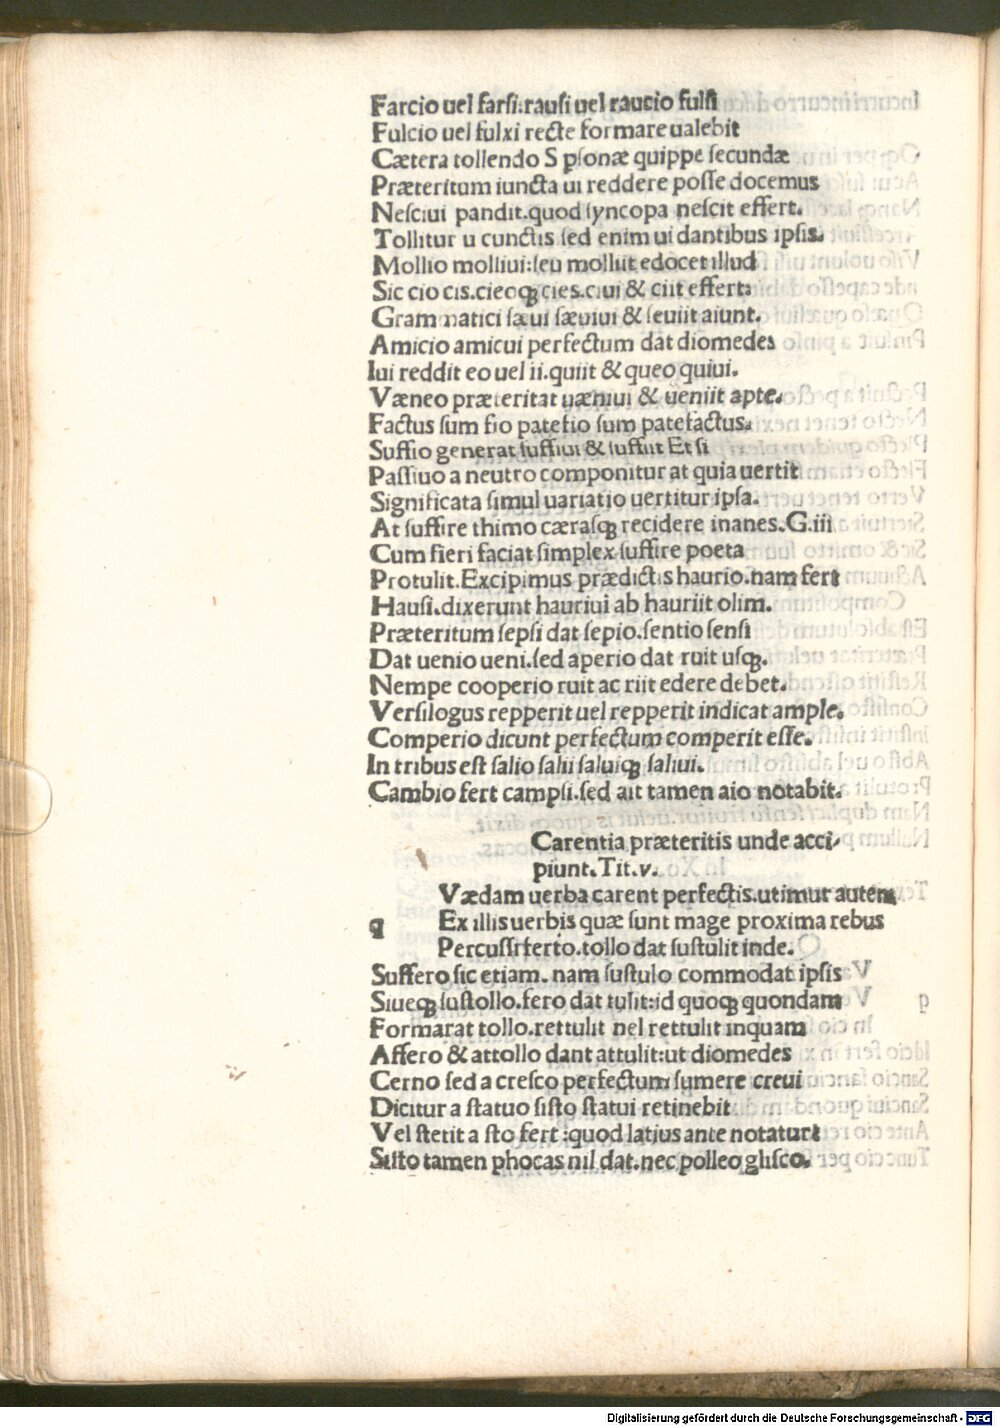 Farcio uel farsi:rausi uel raucio fulsi
Fulcio uel fulxi recte formare ualebit
Cætera tollendo S psonæ quippe secundæ
Præteritum iuncta ui reddere posse docemus
Nesciui pandit.quod syncopa nescit effert.
Tollitur u cunctis sed enim ui dantibus ipsis.
Mollio molliui:seu molliit edocet illud
Sic cio cis.cieoqꝫ cies.ciui & ciit effert:
Grammatici sæui sæuiui & seuiit aiunt.
Amicio amicui perfectum dat diomedes
Iui reddit eo uel ii.quiit & queo quiui.
Væneo præteritat uæniui & ueniit apte.
Factus sum fio patefio sum patefactus.
Suffio generat suffiui & suffiit Et si
Passiuo a neutro componitur at quia uertit
Significata simul uariatio uertitur ipsa.
At suffire thimo cærasqꝫ recidere inanes.G.iii
Cum fieri faciat simplex suffire poeta
Protulit.Excipimus prædictis haurio.nam fert
Hausi.dixerunt hauriui ab hauriit olim.
Præteritum sepsi dat sepio.sentio sensi
Dat uenio ueni.sed aperio dat ruit usqꝫ.
Nempe cooperio ruit ac riit edere debet.
Versilogus repperit uel repperit indicat ample.
Comperio dicunt perfectum comperit esse.
In tribus est salio salii saluiqꝫ saliui.
Cambio fert campsi.sed ait tamen aio notabit.
Carentia præteritis unde acci-
piunt.Tit.v.
q
Vædam uerba carent perfectis.utimur autem
Ex illis uerbis quæ sunt mage proxima rebus
Percussi:ferio.tollo dat sustulit inde.
Suffero sic etiam.nam sustulo commodat ipsis
Siueqꝫ sustollo.fero dat tulit:id quoqꝫ quondam
Formarat tollo.rettulit nel rettulit inquam
Affero & attollo dant attulit:ut diomedes
Cerno sed a cresco perfectum sumere creui
Dicitur a statuo sisto statui retinebit
Vel stetit a sto fert:quod latius ante notatur:
Sisto tamen phocas nil dat.nec polleo glisco.
Digitalisierung gefördert durch die Deutsche Forschungsgemeinschaft - DFG